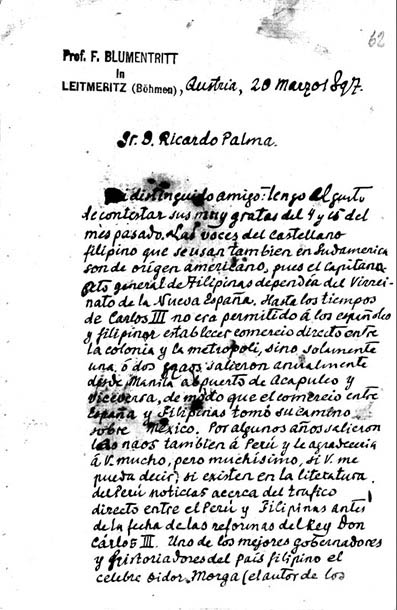 62
Prof. F. BLUMENTRITT
in
LEITMERITZ (Böhmen), Austria, 20 Marzo 1897.
Sr. D. Ricardo Palma.
Mi distinguido amigo: tengo el gusto
de contestar sus muy gratas del 4 y 15 del
mes pasado. Las voces del castellano
filipino que se usan tambien en Sudamerica
son de origen americano, pues el Capitana
general de Filipinas dependía del Virrei-
nato de la Nueva España. Hasta los tiempos
de Carlos III no era permitido á los españoles
y filipinos establecer comercio directo entre
la colonia y la metropoli, sino solamente
una, ó dos naos salieron anualmente
desde Manila al puerto de Acapulco y
viceversa, de modo que el comercio entre
España y Filipinas tomó su camino
sobre México. Por algunos años salieron
las naos tambien á Perú y le agradeceria
á V. mucho, pero muchísimo, si V. me
pueda decir, si existen en la literatura
del Perú noticias acerca del trafico
directo entre el Perú y Filipinas antes
de la fecha de las reformas del Rey Don
Cárlos III. Uno de los mejores gobernadores
y historiadores del país filipino el
celebre oidor Morga (el autor de los